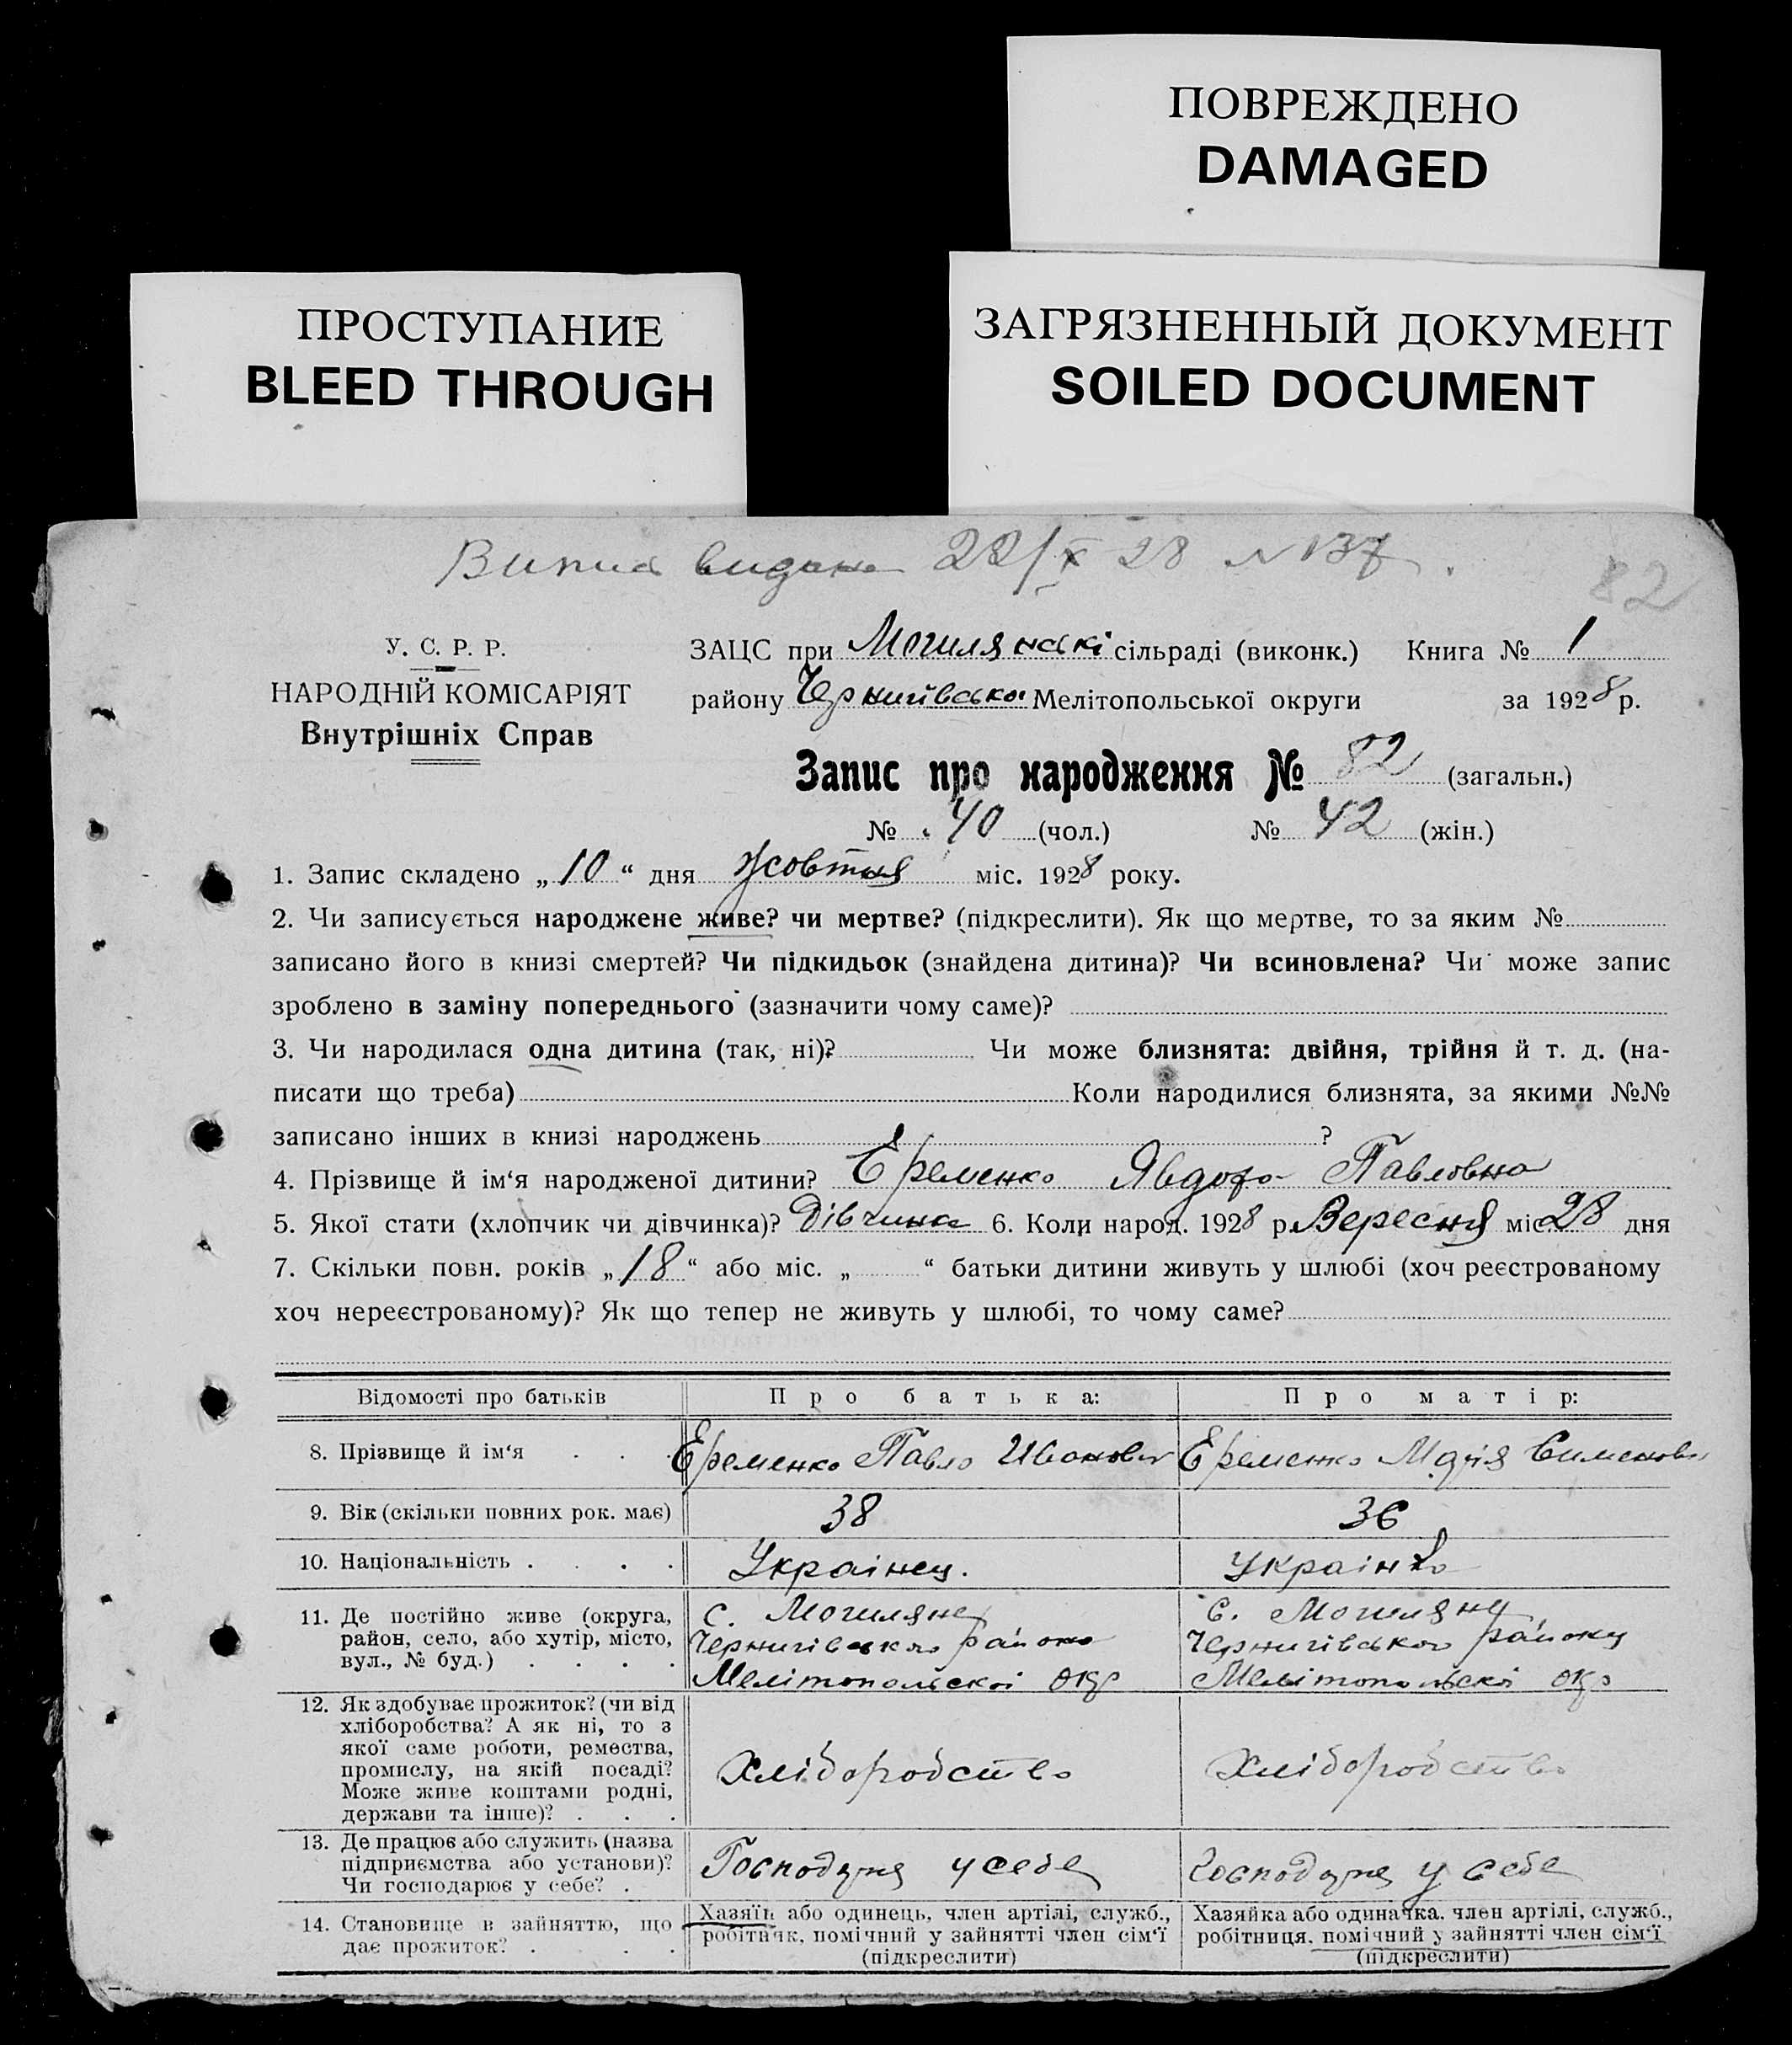 ПОВРЕЖДЕНО
DAMAGED
ПРОСТУПАНИЕ
BLEED THROUGH
ЗАГРЯЗНЕННЫЙ ДОКУМЕНТ
SOILED DOCUMENT
Випис видано 22/X 28 N 137.
82
У. С. Р. Р.
НАРОДНІЙ КОМІСАРІЯТ
Внутрішніх Справ
ЗАЦС при Могилянські сільраді (виконк.) Книга № 1
району Чернигівсько Мелітопольської округи за 1928 р.
Запис про народження № 82 (загальн.)
№ 40 (чол.) № 42 (жін.)
1. Запис складено „10“ дня Жовтня міс. 1928 року.
2. Чи записується народжене живе? чи мертве? (підкреслити). Як що мертве, то за яким №
записано його в книзі смертей? Чи підкидьок (знайдена дитина)? Чи всиновлена? Чи може запис
зроблено в заміну попереднього (зазначити чому саме)?
3. Чи народилася одна дитина (так, ні)? Чи може близнята: двійня, трійня й т. д. (на-
писати що треба) Коли народилися близнята, за якими №№
записано інших в книзі народжень ?
4. Прізвище й ім‘я народженої дитини? Еременко Явдоха Павловна
5. Якої стати (хлопчик чи дівчинка)? Дівчинка 6. Коли народ. 1928 р. Вересня міс. 28 дня
7. Скільки повн. років „18“ або міс. „ “ батьки дитини живуть у шлюбі (хоч реєстрованому
хоч нереєстрованому)? Як що тепер не живуть у шлюбі, то чому саме?
Відомості про батьків Про батька: Про матір:
8. Прізвище й ім‘я Еременко Павло Иванович Еременко Марія Сименовн
9. Вік (скільки повних рок. має) 38 36
10. Національність Украінец. Украінка
11. Де постійно живе (округа,
район, село, або хутір, місто,
вул., № буд.)
с. Могиляны
Чернигівсько району
Мелітопольскоі окр
с. Могиляны
Чернигівсько району
Мелітопольскоі окр
12. Як здобуває прожиток? (чи від
хліборобства? А як ні, то з
якої саме роботи, ремества,
промислу, на якій посаді?
Може живе коштами родні,
держави та інше)?
Хліборобство
Хліборобство
13. Де працює або служить (назва
підприємства або установи)?
Чи господарює у себе?
Господуря у себе
Господуря у себе
14. Становище в зайняттю, що
дає прожиток?
Хазяїн або одинець, член артілі, служб.,
робітник, помічний у зайнятті член сім‘ї
(підкреслити)
Хазяйка або одиначка, член артілі, служб.,
робітниця, помічний у зайнятті член сім‘ї
(підкреслити)